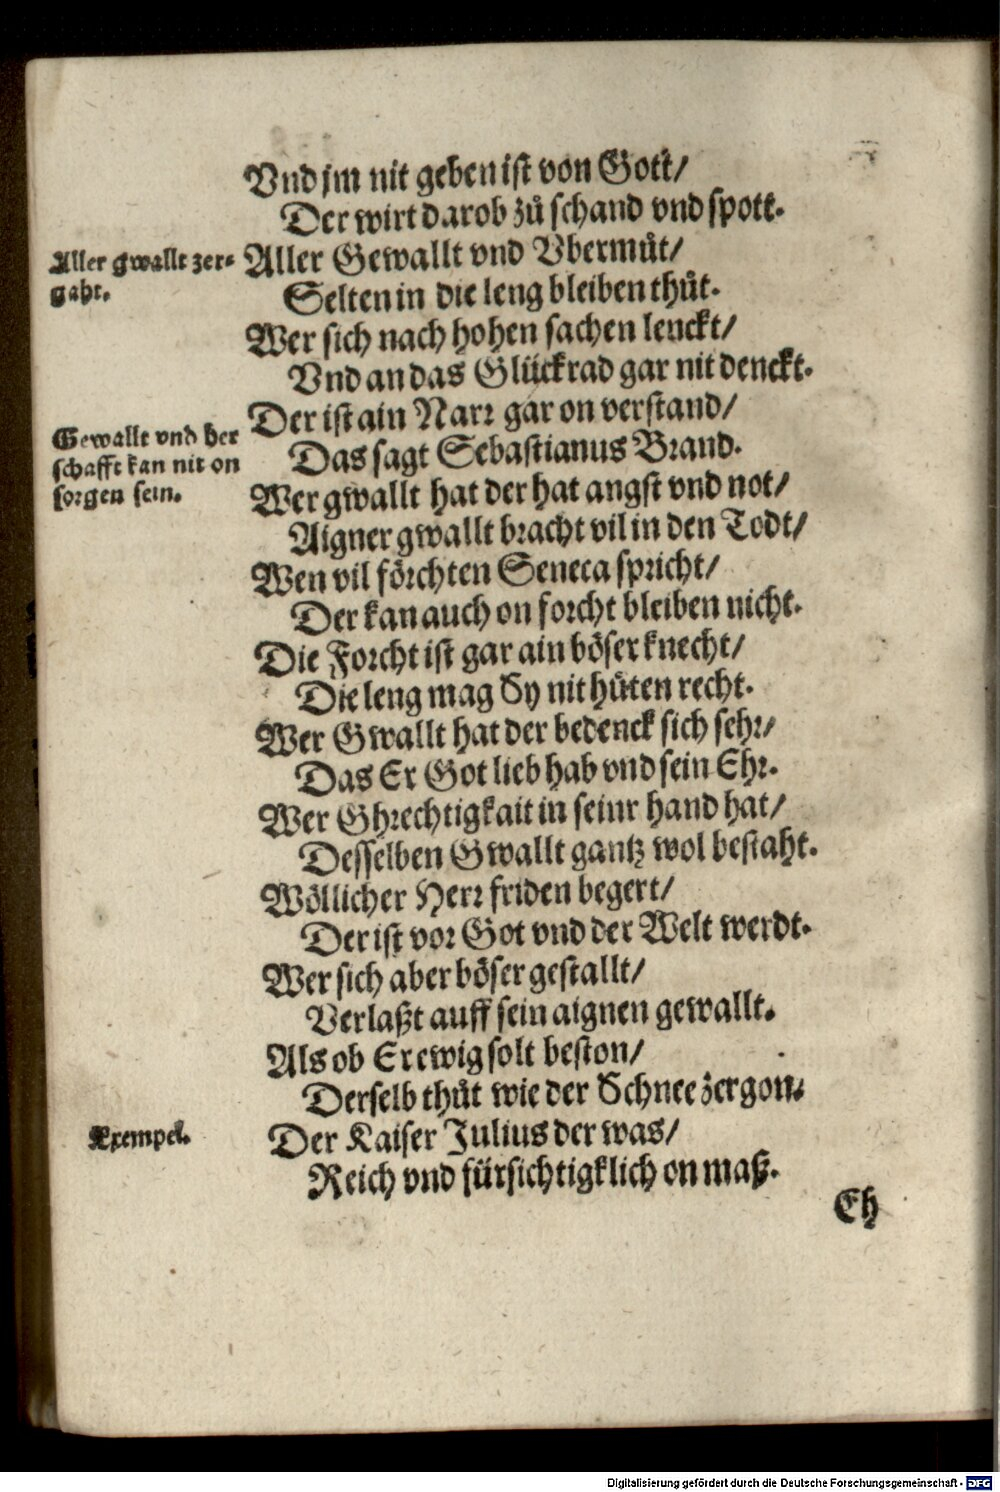 Vnd jm nit geben ist von Gott/
Der wirt darob zů schand vnd spott.
Aller gwallt zer-
gaht.
Aller Gewallt vnd Vbermůt/
Selten in die leng bleiben thůt.
Wer sich nach hohen sachen lenckt/
Vnd an das Glückrad gar nit denckt.
Gewallt vnd her
schafft kan nit on
sorgen sein.
Der ist ain Narr gar on verstand/
Das sagt Sebastianus Brand.
Wer gwallt hat der hat angst vnd not/
Aigner gwallt bracht vil in den Todt/
Wen vil förchten Seneca spricht/
Der kan auch on forcht bleiben nicht.
Die Forcht ist gar ain böser knecht/
Die leng mag Sy nit hůten recht.
Wer Gwallt hat der bedenck sich sehr/
Das Er Got lieb hab vnd sein Ehr.
Wer Ghrechtigkait in seinr hand hat/
Desselben Gwallt gantz wol bestaht.
Wöllicher Herr friden begert/
Der ist vor Got vnd der Welt werdt.
Wer sich aber böser gestallt/
Verlaßt auff sein aignen gewallt.
Als ob Er ewig solt beston/
Derselb thůt wie der Schnee zergon.
Exempel.
Der Kaiser Julius der was/
Reich vnd fürsichtigklich on maß.
Eh
Digitalisierung gefördert durch die Deutsche Forschungsgemeinschaft - DFG